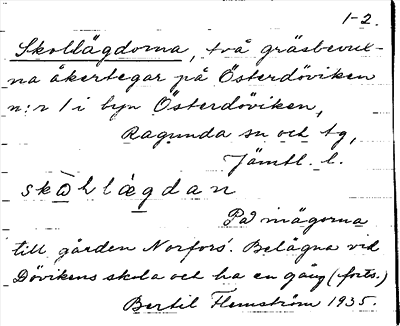 1-2.
Skollägdorna, två gräsbevux-
na åkertegar på Österdöviken
n:r 1 i byn Österdöviken,
Ragunda sn och tg,
Jämtl. l.
skòhlægdan
På inägorna
till gården Norfors. Belägna vid
Dövikens skola och ha en gång (forts.)
Bertil Flemström 1935.